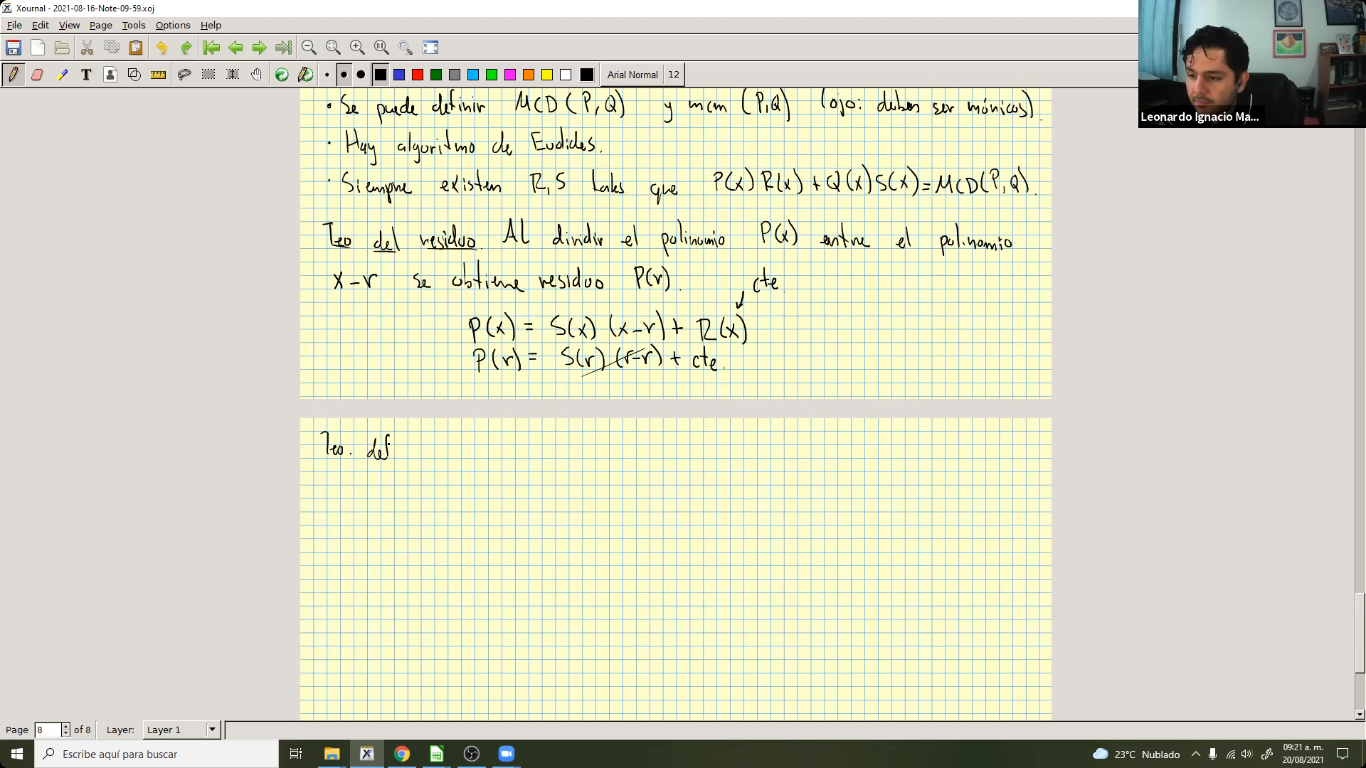 Xournal - 2021-08-16-Note-09-59.xoj
File Edit View Page Tools Options Help
Arial Normal 12
Leonardo Ignacio Ma...
• Se puede definir MCD(P,Q) y mcm(P,Q) (ojo: deben ser mónicos).
• Hay algoritmo de Euclides.
• Siempre existen R,S tales que P(x)R(x)+Q(x)S(x)=MCD(P,Q).
Teo del residuo. Al dividir el polinomio P(x) entre el polinomio
x-r se obtiene residuo P(r). cte.
P(x) = S(x)(x-r) + R(x)
P(r) = S(r)(r-r) + cte.
Teo. def
Page 8 of 8 Layer: Layer 1
Escribe aquí para buscar
23°C Nublado
09:21 a. m.
20/08/2021